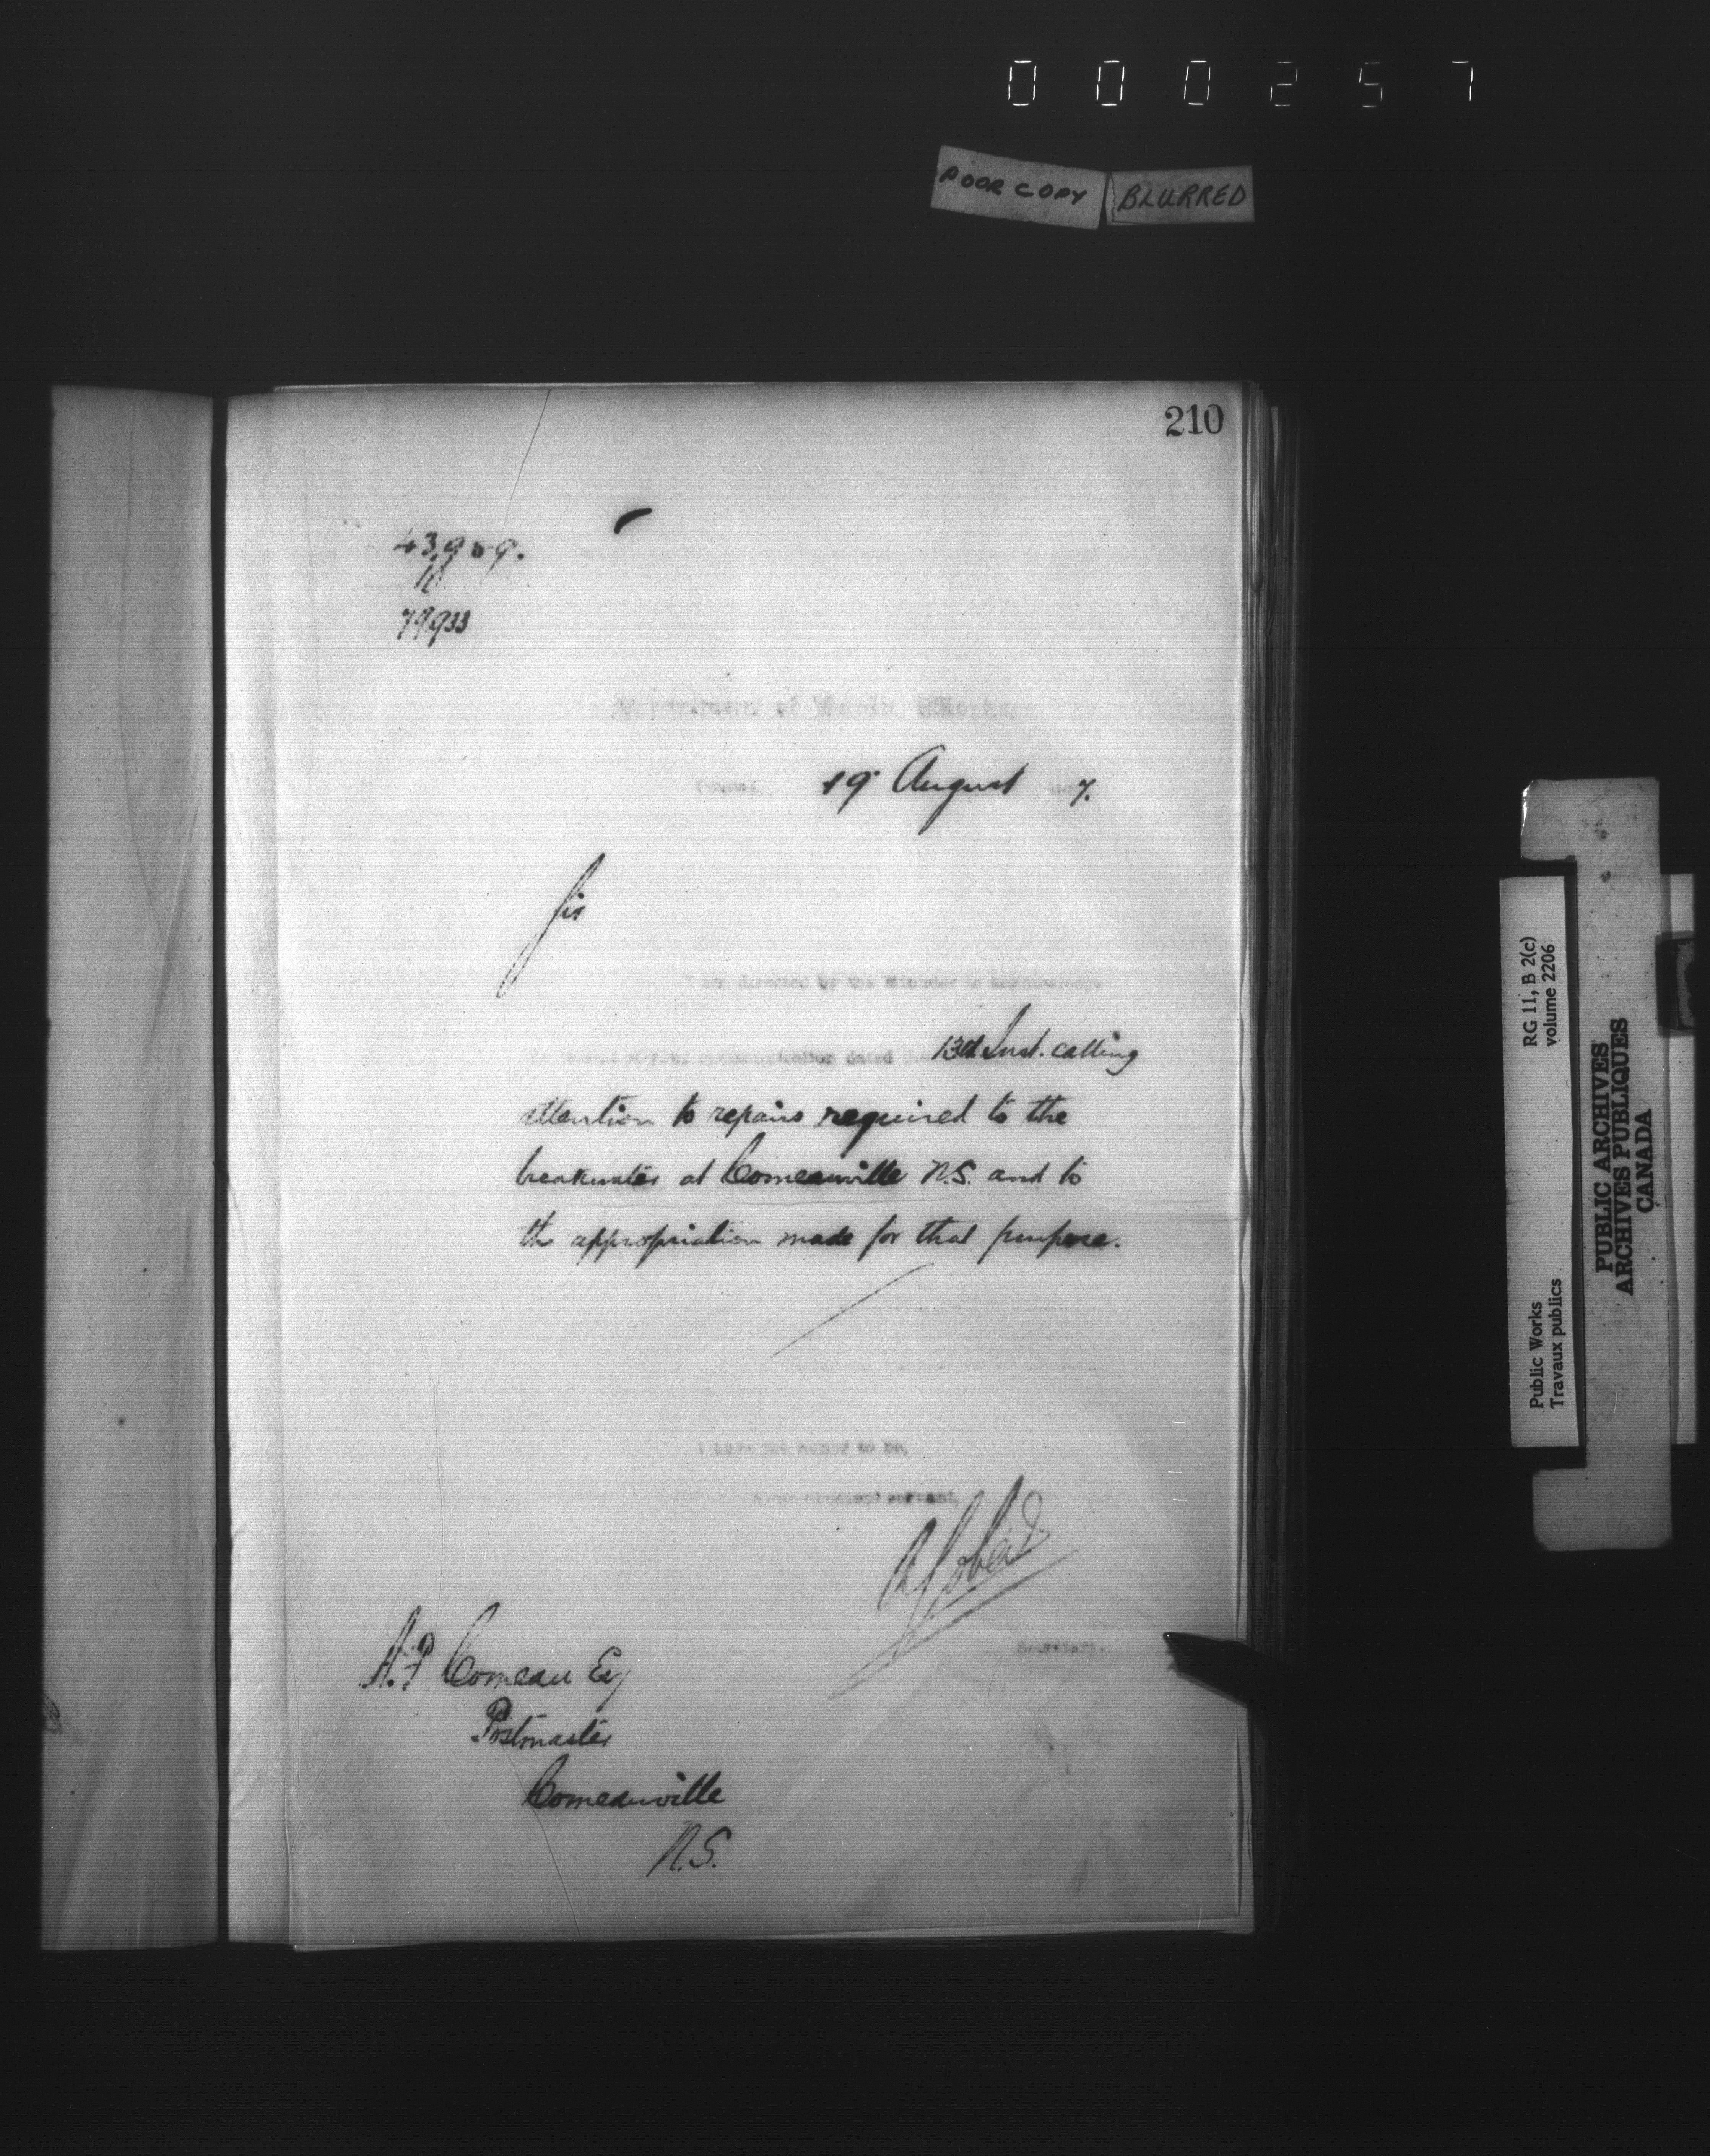 000257
POOR COPY BLURRED
210
79933
Department of Public Works,
Ottawa, 19 August 7.
Sir
I am directed by the Minister to acknowledge
your communication dated the 13th Inst. calling
attention to repairs required to the
breakwater at Comeauville N.S. and to
the appropriation made for that purpose.
I have the honor to be,
Your obedient servant,
A Gobeil
Secretary.
A.P Comeau Esq
Postmaster
Comeauville
N.S.
RG 11, B 2(c)
volume 2206
Public Works
Travaux publics
PUBLIC ARCHIVES
ARCHIVES PUBLIQUES
CANADA